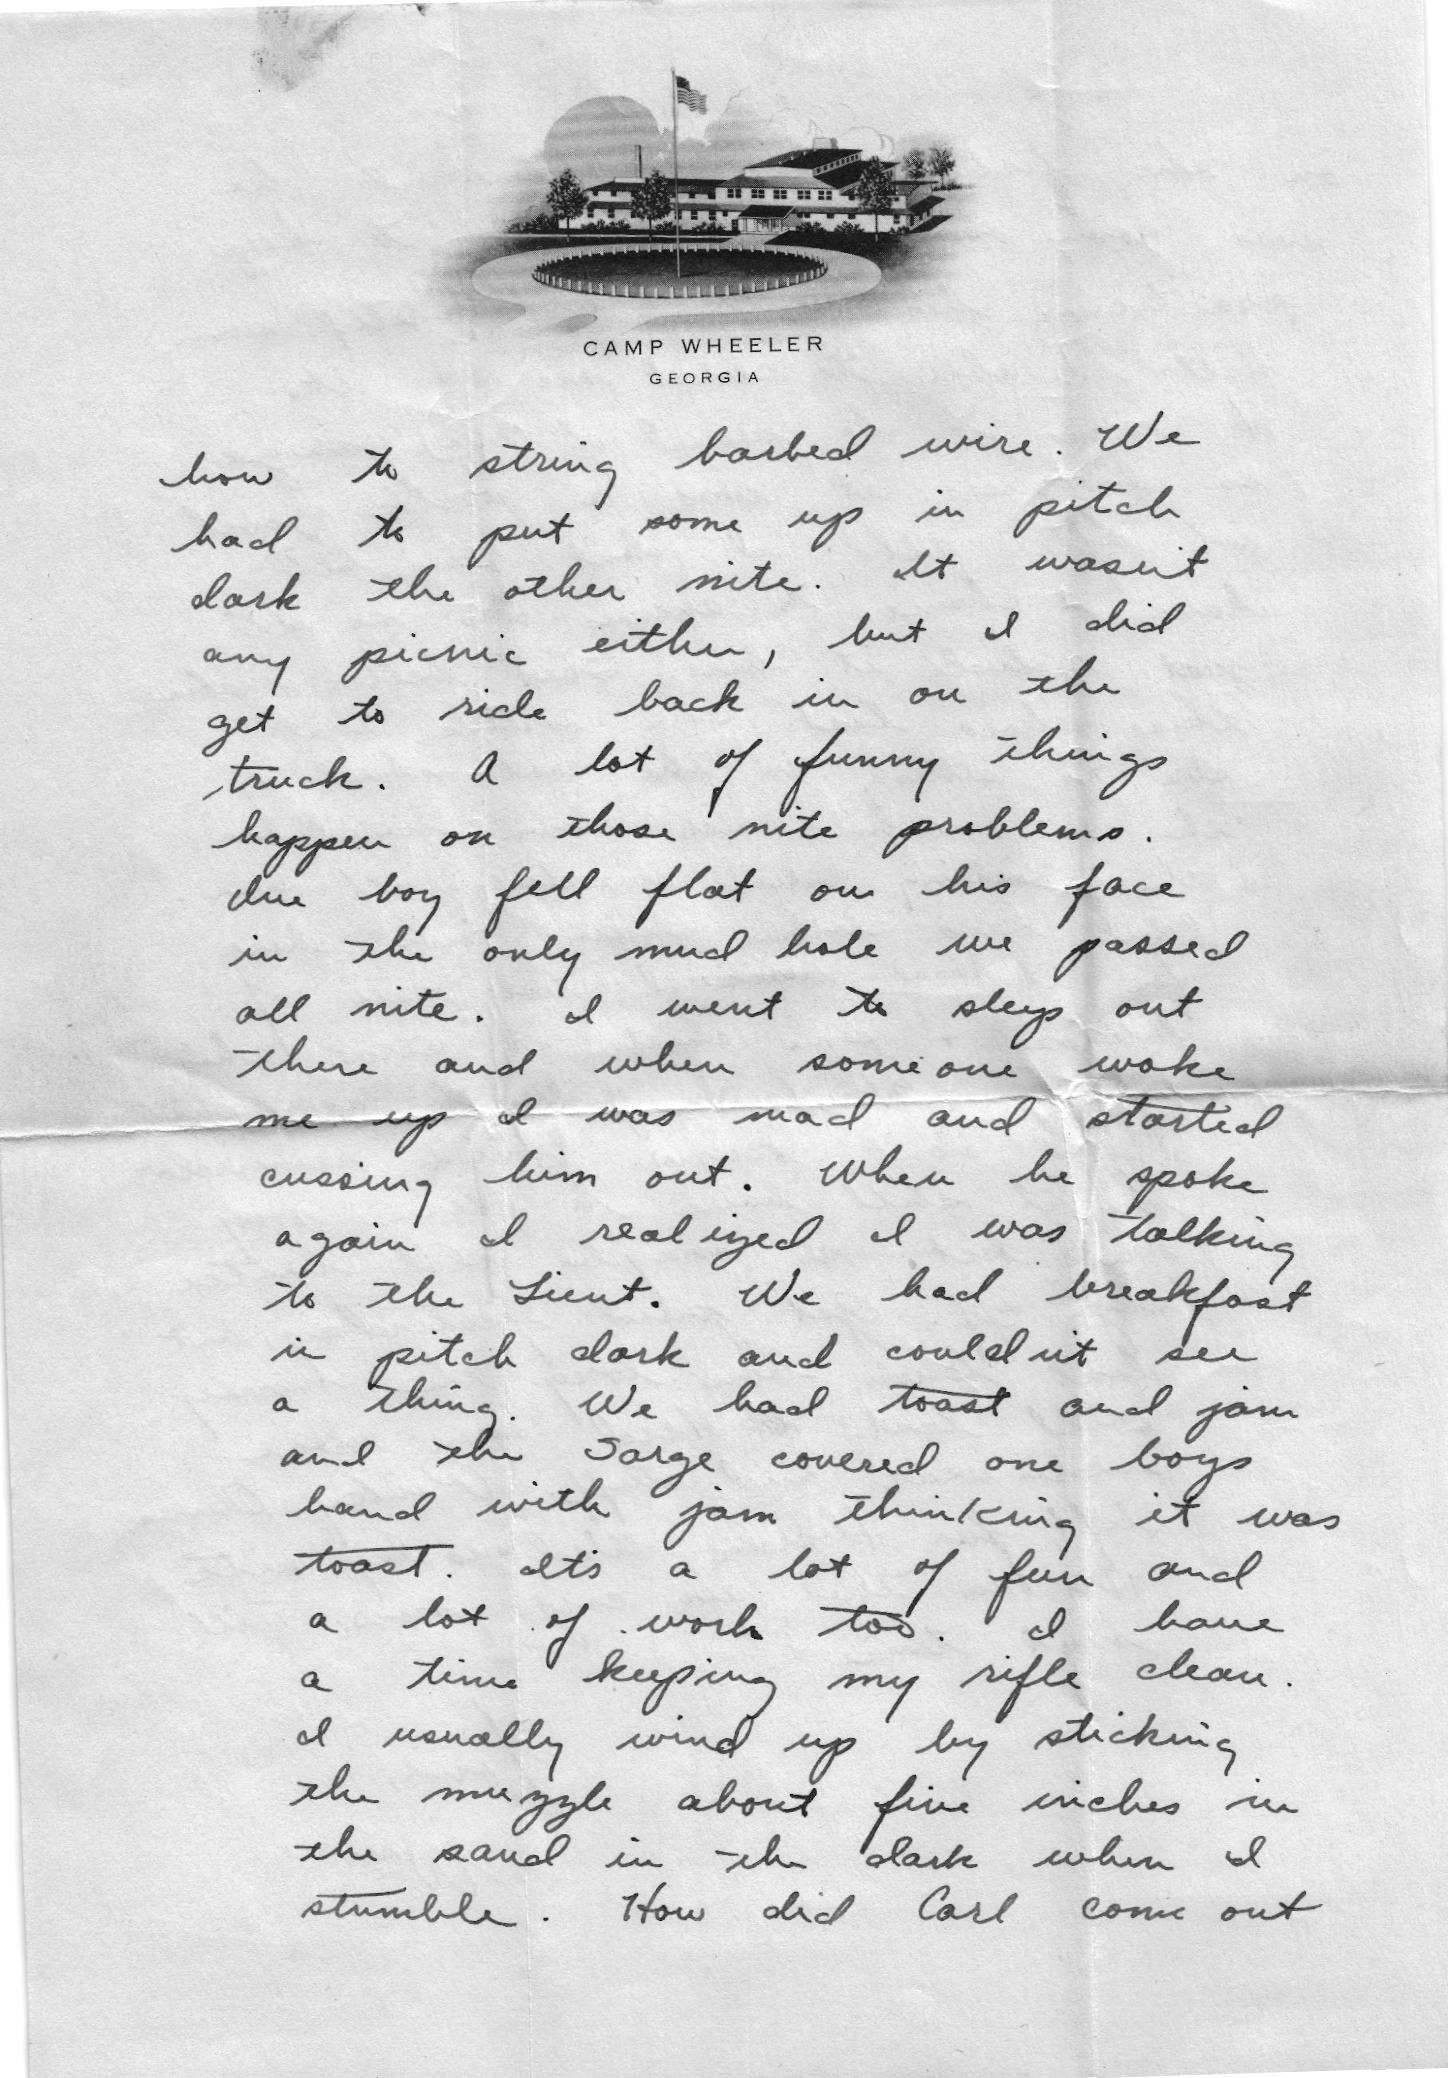 CAMP WHEELER
GEORGIA
how to string barbed wire. We
had to put some up in pitch
dark the other nite. It wasn't
any picnic either, but I did
get to ride back in on the
truck. A lot of funny things
happen on those nite problems.
One boy fell flat on his face
in the only mud hole we passed
all nite. I went to sleep out
there and when someone woke
me up I was mad and started
cussing him out. When he spoke
again I realized I was talking
to the Lieut. We had breakfast
in pitch dark and couldn't see
a thing. We had toast and jam
and the Sarge covered one boys
hand with jam thinking it was
toast. It's a lot of fun and
a lot of work too. I have
a time keeping my rifle clean.
I usually wind up by sticking
the muzzle about five inches in
the sand in the dark when I
stumble. How did Carl come out